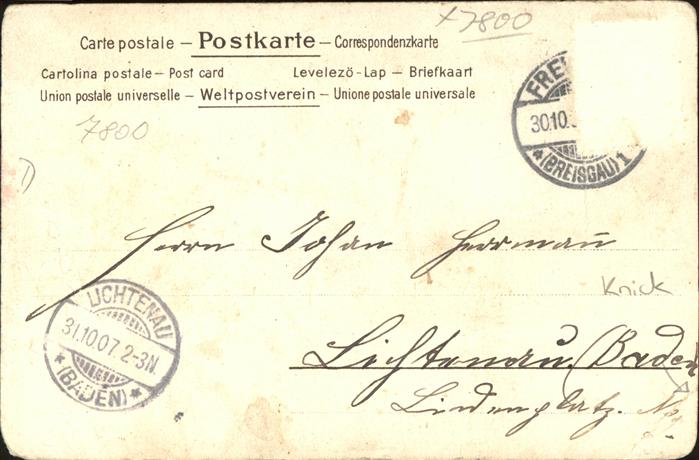 x7800
Carte postale – Postkarte – Correspondenzkarte
Cartolina postale – Post card Levelezö - Lap – Briefkaart
Union postale universelle – Weltpostverein – Unione postale universale
7800
FREI
30.10.
*(BREISGAU) 1
Herrn Johan Herrmann
LICHTENAU
31.10.07. 2-3N.
*(BADEN)*
Knick
Lichtenau (Baden)
Lindenplatz. No